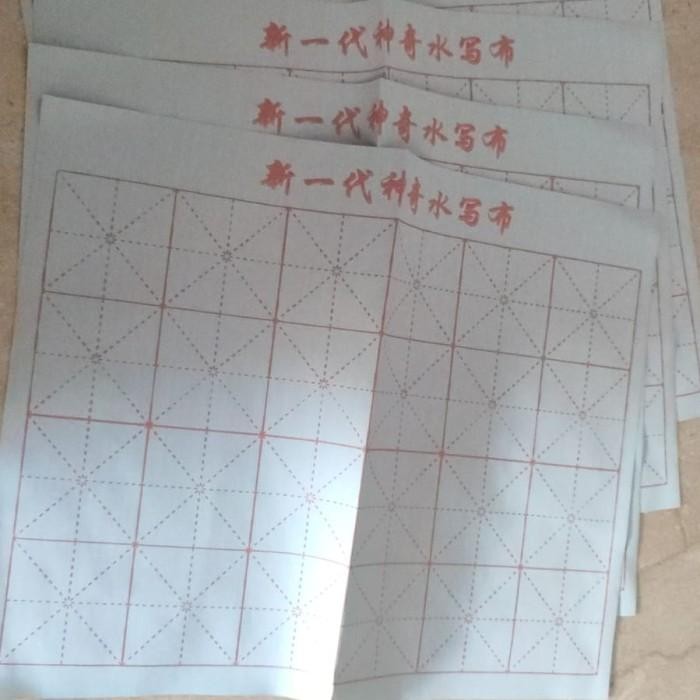 新一代神奇水写布
新一代神奇水写布
新一代神奇水写布